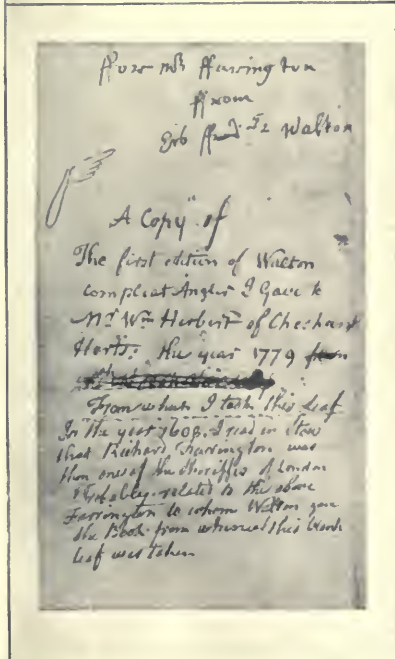 ffor mr ffarington
ffrom
his ffrd Iz Walton
A Copy of
The first edition of Walton
compleat Angler I Gave to
Mr Wm Herbert of Cheshunt
Herts. the year 1779
From whence I took this leaf
In the year 1608. I read in Stow
that Richard Farrington was
then one of the Sheriffes of London
Probably related to the above
Farrington to whom Walton gave
the Book from whence this blank
leaf was taken